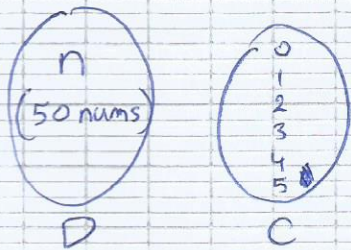 n
(50 nums)
D
0
1
2
3
4
5
C